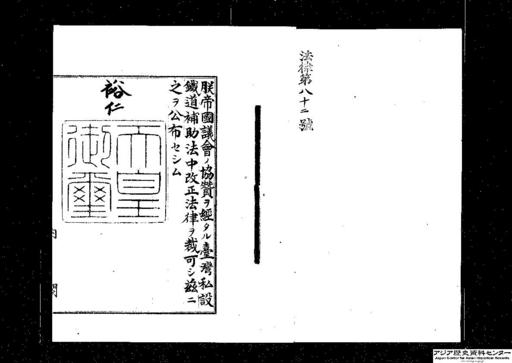 法律第八十二號
朕帝國議會ノ協贊ヲ經タル臺灣私設
鐵道補助法中改正法律ヲ裁可シ茲ニ
之ヲ公布セシム
裕仁
天皇
御璽
内閣
アジア歴史資料センター
Japan Center for Asian Historical Records